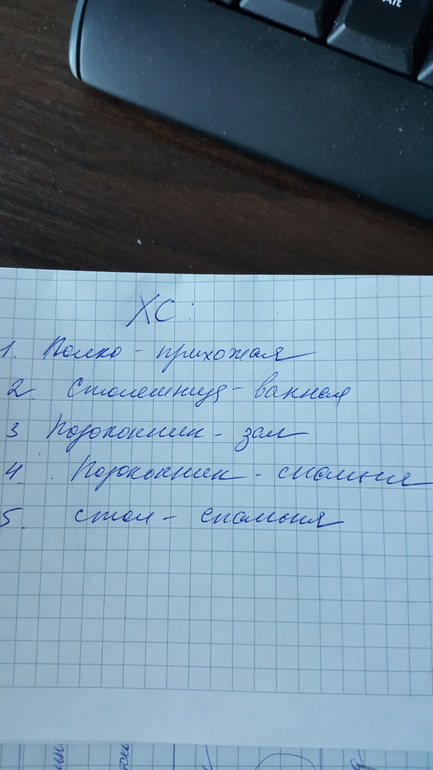 ХС:
1. Полка - прихожая
2. Столешница - ванная
3 Подоконник - зал
4. Подоконник - спальня
5. стол - спальня